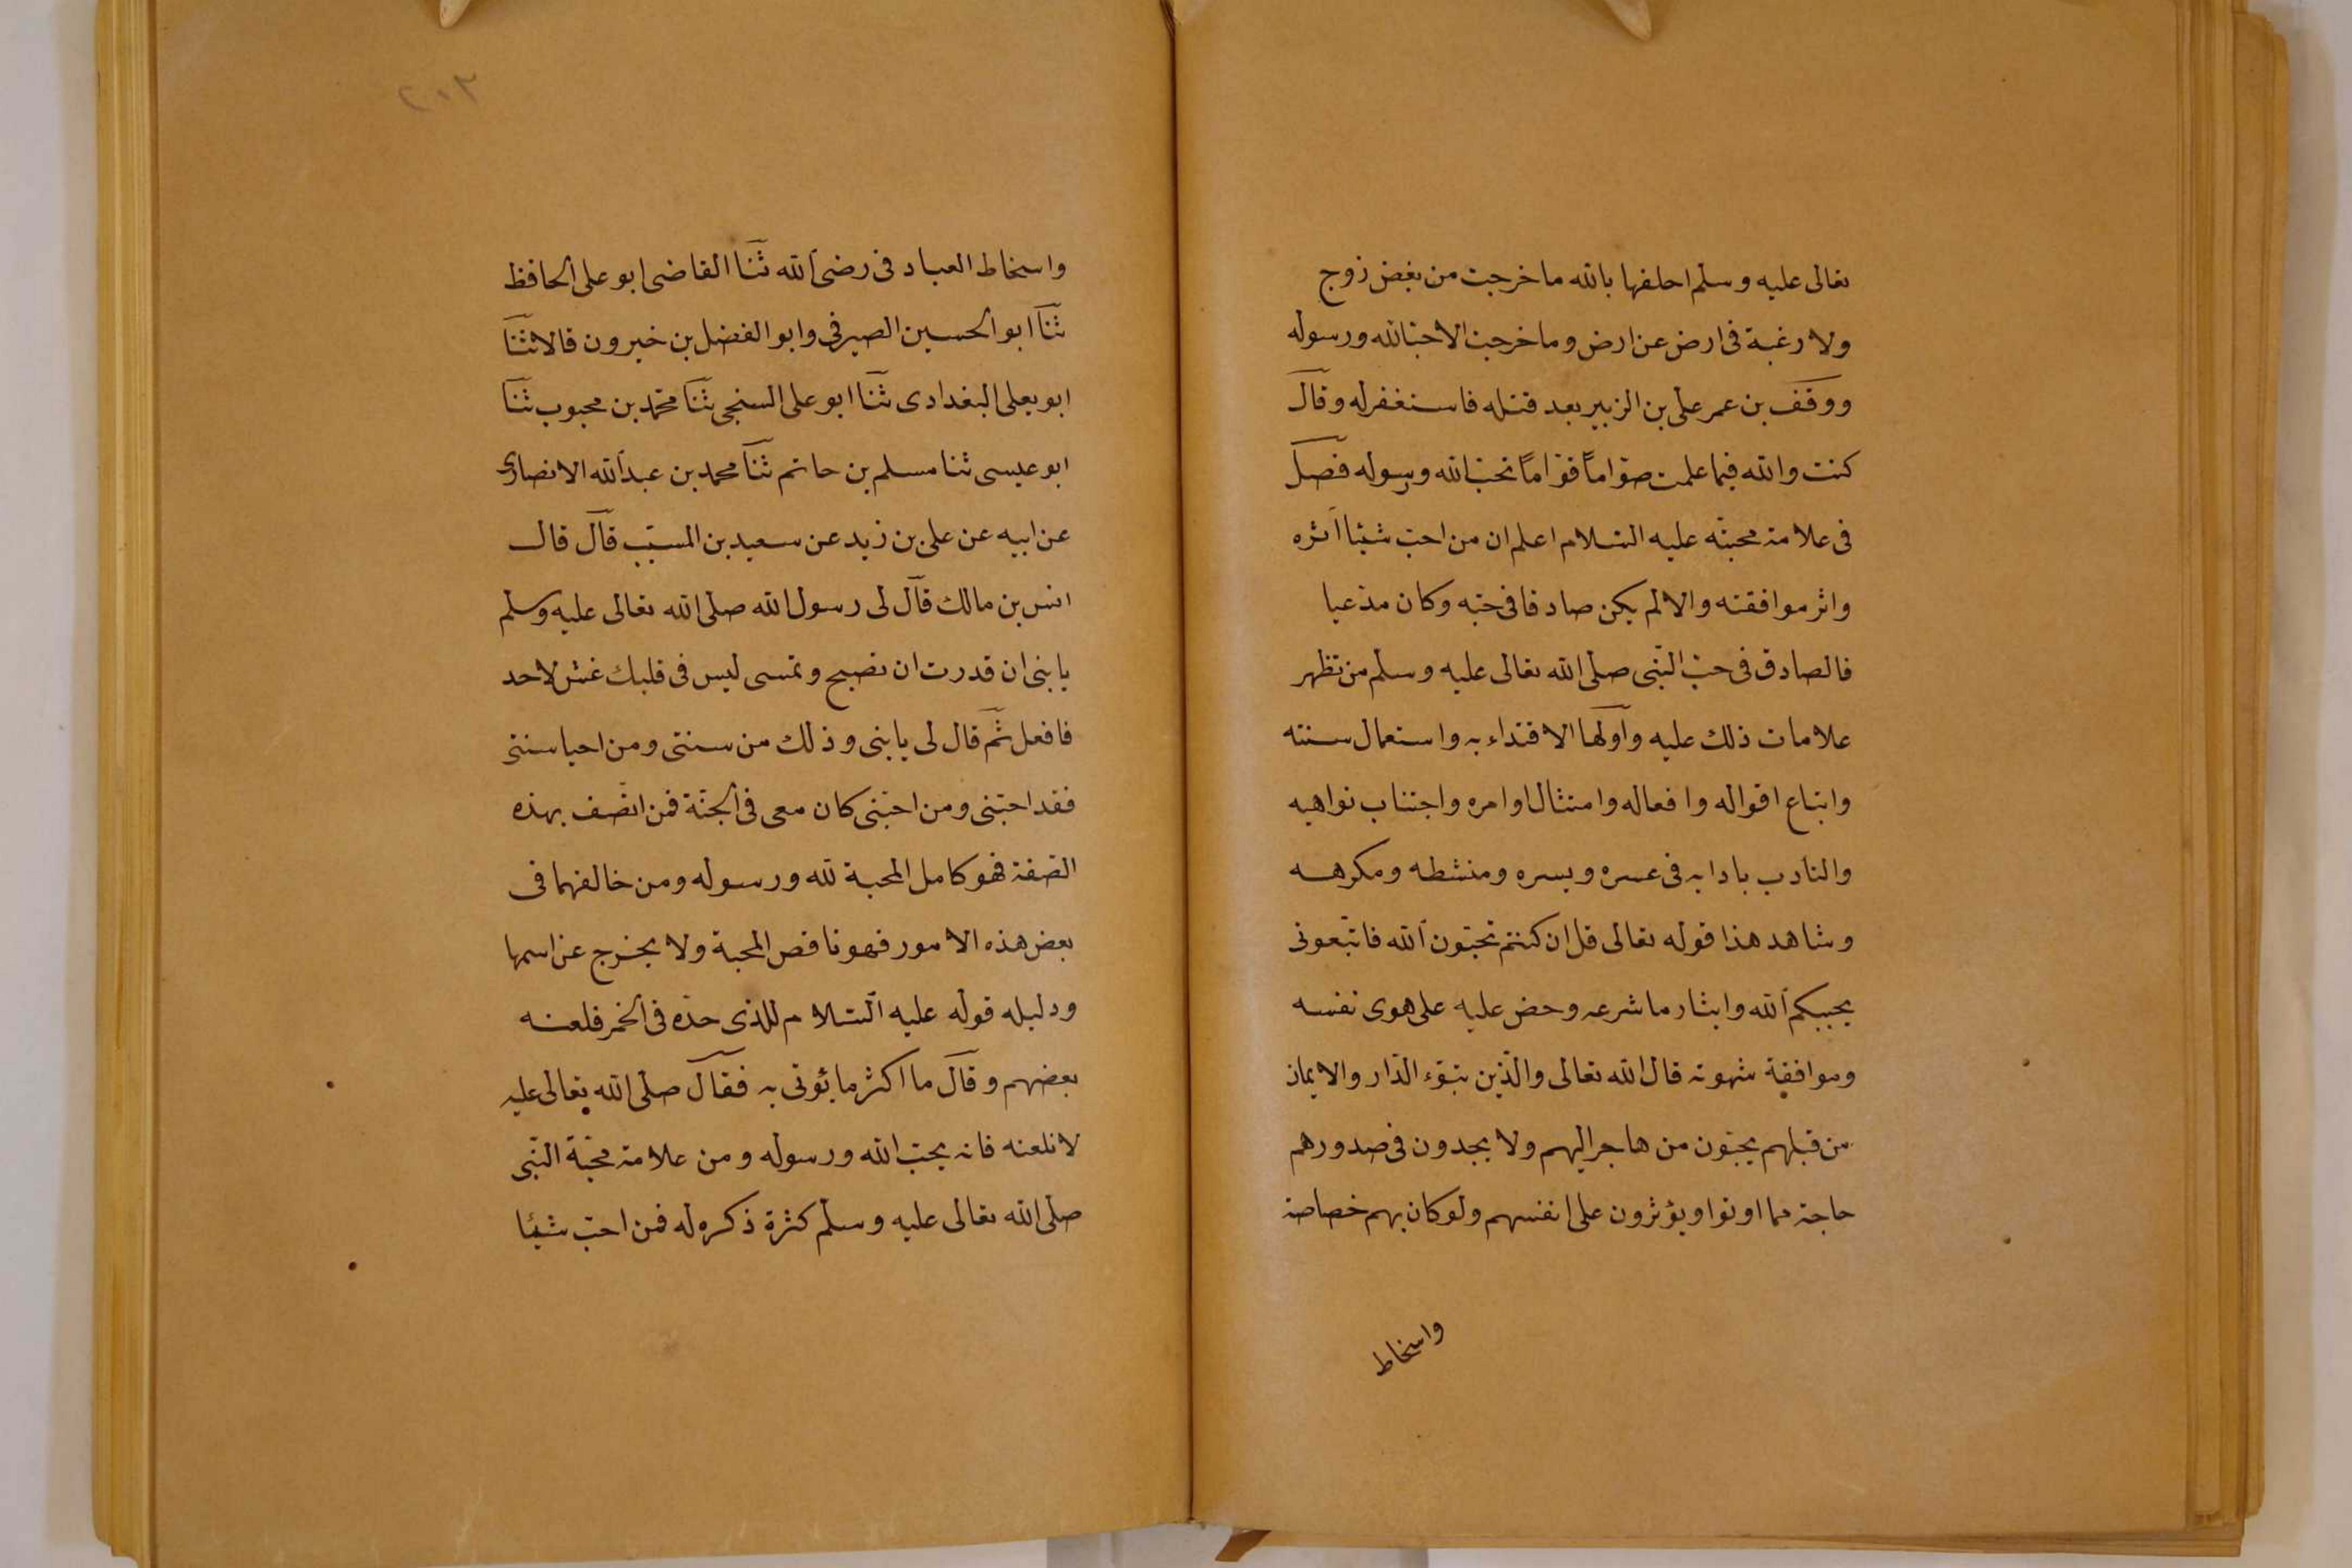 تعالى عليه وسلم احلفها بالله ما خرجت من بغض زوج
ولا رغبة فى ارض عن ارض وما خرجت الا حبّا لله ورسوله
ووقف بن عمر على بن الزبير بعد قتله فاستغفر له وقال
كنت والله فيما علمت صوّاماً قوّاماً تحبّ الله ورسوله فصل
فى علامة محبته عليه السّلام اعلم ان من احبّ شيئا آثره
واثر موافقته والا لم يكن صادقا فى حبّه وكان مدعيا
فالصادق فى حبّ النّبى صلى الله تعالى عليه وسلم من تظهر
علامات ذلك عليه واولها الاقتداء به واستعمال سنته
واتباع اقواله وافعاله وامتثال اوامره واجتناب نواهيه
والتادب بادابه فى عسره ويسره ومنشطه ومكرهه
وشاهد هذا قوله تعالى قل ان كنتم تحبّون الله فاتّبعونى
يحببكم الله وايثار ما شرعه وحض عليه على هوى نفسه
وموافقة شهوته قال الله تعالى والّذين تبوّء الدّار والايمان
من قبلهم يحبّون من هاجر اليهم ولا يجدون فى صدورهم
حاجة مما اوتوا ويؤثرون على انفسهم ولو كان بهم خصاصة
واسخاط
٢٠٣
واسخاط العباد فى رضى الله ثنا القاضى ابو على الحافظ
ثنا ابو الحسين الصيرفى وابو الفضل بن خيرون قالا ثنا
ابو يعلى البغدادى ثنا ابو على السنجى ثنا محمّد بن محبوب ثنا
ابو عيسى ثنا مسلم بن حاتم ثنا محمد بن عبد الله الانصارى
عن ابيه عن على بن زيد عن سعيد بن المسيّب قال قال
انس بن مالك قال لى رسول الله صلى الله تعالى عليه وسلم
يا بنى ان قدرت ان تصبح وتمسى ليس فى قلبك غش لاحد
فافعل ثم قال لى يا بنى وذلك من سنتى ومن احيا سنتى
فقد احبّنى ومن احبّنى كان معى فى الجنّة فمن اتّصف بهذه
الصّفة فهو كامل المحبة لله ورسوله ومن خالفهما فى
بعض هذه الامور فهو ناقص المحبة ولا يخرج عن اسمها
ودليله قوله عليه السّلام للذى حدّه فى الخمر فلعنه
بعضهم وقال ما اكثر ما يؤتى به فقال صلى الله تعالى عليه
لا تلعنه فانه يحبّ الله ورسوله ومن علامة محبّة النّبى
صلى الله تعالى عليه وسلم كثرة ذكره له فمن احبّ شيئا